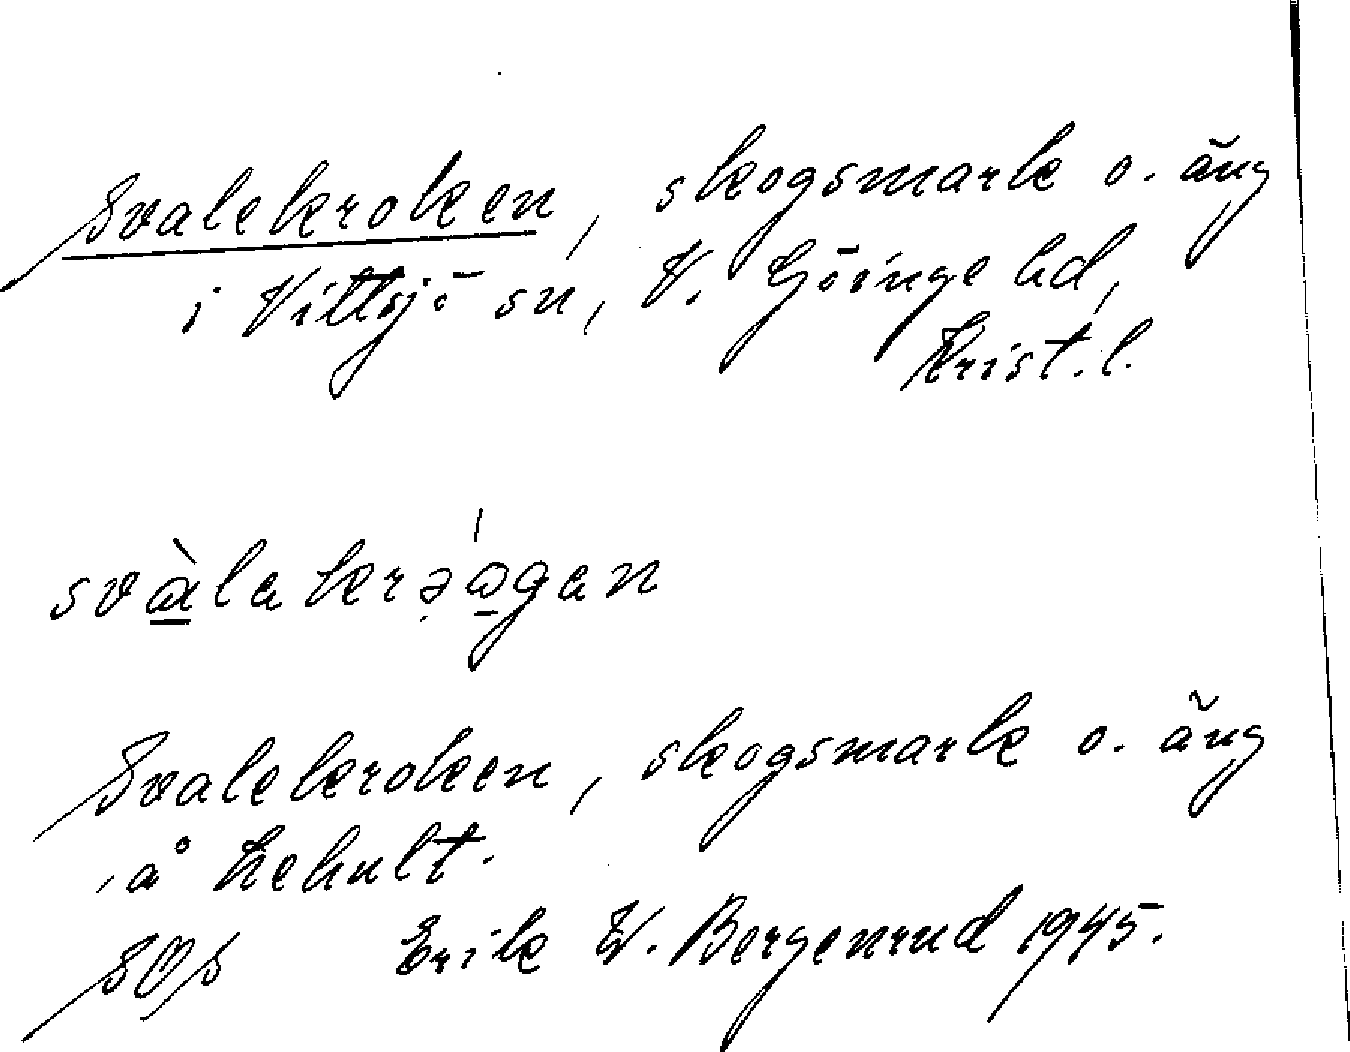 Svalekroken, skogsmark o. äng
i Vittsjö sn, V. Göinge hd,
Krist. l.
Svalekroken, skogsmark o. äng
å Lehult.
Erik W. Bergenrud 1945.